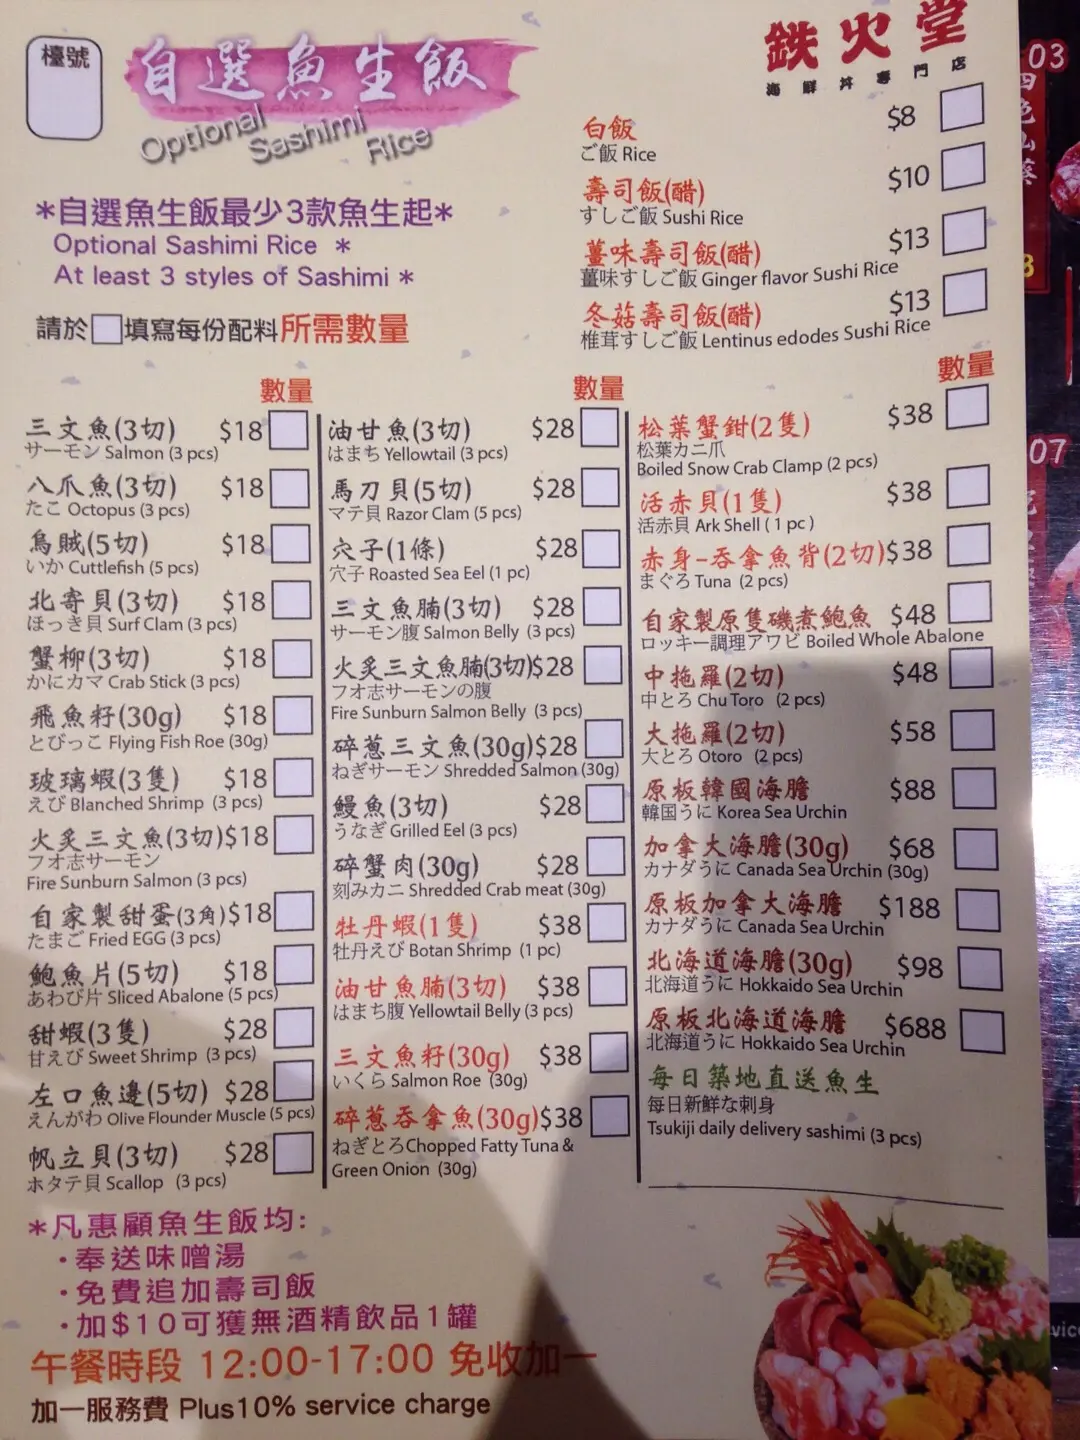 檯號
自選魚生飯
Optional Sashimi Rice
鉄火堂
海鮮丼專門店
*自選魚生飯最少3款魚生起*
Optional Sashimi Rice *
At least 3 styles of Sashimi *
請於□填寫每份配料所需數量
白飯 $8
ご飯 Rice
壽司飯(醋) $10
すしご飯 Sushi Rice
薑味壽司飯(醋) $13
薑味すしご飯 Ginger flavor Sushi Rice
冬菇壽司飯(醋) $13
椎茸すしご飯 Lentinus edodes Sushi Rice
數量
三文魚(3切) $18
サーモン Salmon (3 pcs)
八爪魚(3切) $18
たこ Octopus (3 pcs)
烏賊(5切) $18
いか Cuttlefish (5 pcs)
北寄貝(3切) $18
ほっき貝 Surf Clam (3 pcs)
蟹柳(3切) $18
かにカマ Crab Stick (3 pcs)
飛魚籽(30g) $18
とびっこ Flying Fish Roe (30g)
玻璃蝦(3隻) $18
えび Blanched Shrimp (3 pcs)
火炙三文魚(3切) $18
フオ志サーモン
Fire Sunburn Salmon (3 pcs)
自家製甜蛋(3角) $18
たまご Fried EGG (3 pcs)
鮑魚片(5切) $18
あわび片 Sliced Abalone (5 pcs)
甜蝦(3隻) $28
甘えび Sweet Shrimp (3 pcs)
左口魚邊(5切) $28
えんがわ Olive Flounder Muscle (5 pcs)
帆立貝(3切) $28
ホタテ貝 Scallop (3 pcs)
數量
油甘魚(3切) $28
はまち Yellowtail (3 pcs)
馬刀貝(5切) $28
マテ貝 Razor Clam (5 pcs)
穴子(1條) $28
穴子 Roasted Sea Eel (1 pc)
三文魚腩(3切) $28
サーモン腹 Salmon Belly (3 pcs)
火炙三文魚腩(3切) $28
フオ志サーモンの腹
Fire Sunburn Salmon Belly (3 pcs)
碎蔥三文魚(30g) $28
ねぎサーモン Shredded Salmon (30g)
鰻魚(3切) $28
うなぎ Grilled Eel (3 pcs)
碎蟹肉(30g) $28
刻みカニ Shredded Crab meat (30g)
牡丹蝦(1隻) $38
牡丹えび Botan Shrimp (1 pc)
油甘魚腩(3切) $38
はまち腹 Yellowtail Belly (3 pcs)
三文魚籽(30g) $38
いくら Salmon Roe (30g)
碎蔥吞拿魚(30g) $38
ねぎとろ Chopped Fatty Tuna &
Green Onion (30g)
數量
松葉蟹鉗(2隻) $38
松葉カニ爪
Boiled Snow Crab Clamp (2 pcs)
活赤貝(1隻) $38
活赤貝 Ark Shell ( 1 pc )
赤身-吞拿魚背(2切) $38
まぐろ Tuna (2 pcs)
自家製原隻磯煮鮑魚 $48
ロッキー調理アワビ Boiled Whole Abalone
中拖羅(2切) $48
中とろ Chu Toro (2 pcs)
大拖羅(2切) $58
大とろ Otoro (2 pcs)
原板韓國海膽 $88
韓国うに Korea Sea Urchin
加拿大海膽(30g) $68
カナダうに Canada Sea Urchin (30g)
原板加拿大海膽 $188
カナダうに Canada Sea Urchin
北海道海膽(30g) $98
北海道うに Hokkaido Sea Urchin
原板北海道海膽 $688
北海道うに Hokkaido Sea Urchin
每日築地直送魚生
每日新鮮な刺身
Tsukiji daily delivery sashimi (3 pcs)
*凡惠顧魚生飯均:
·奉送味噌湯
·免費追加壽司飯
·加$10可獲無酒精飲品1罐
午餐時段 12:00-17:00 免收加一
加一服務費 Plus10% service charge
03
07